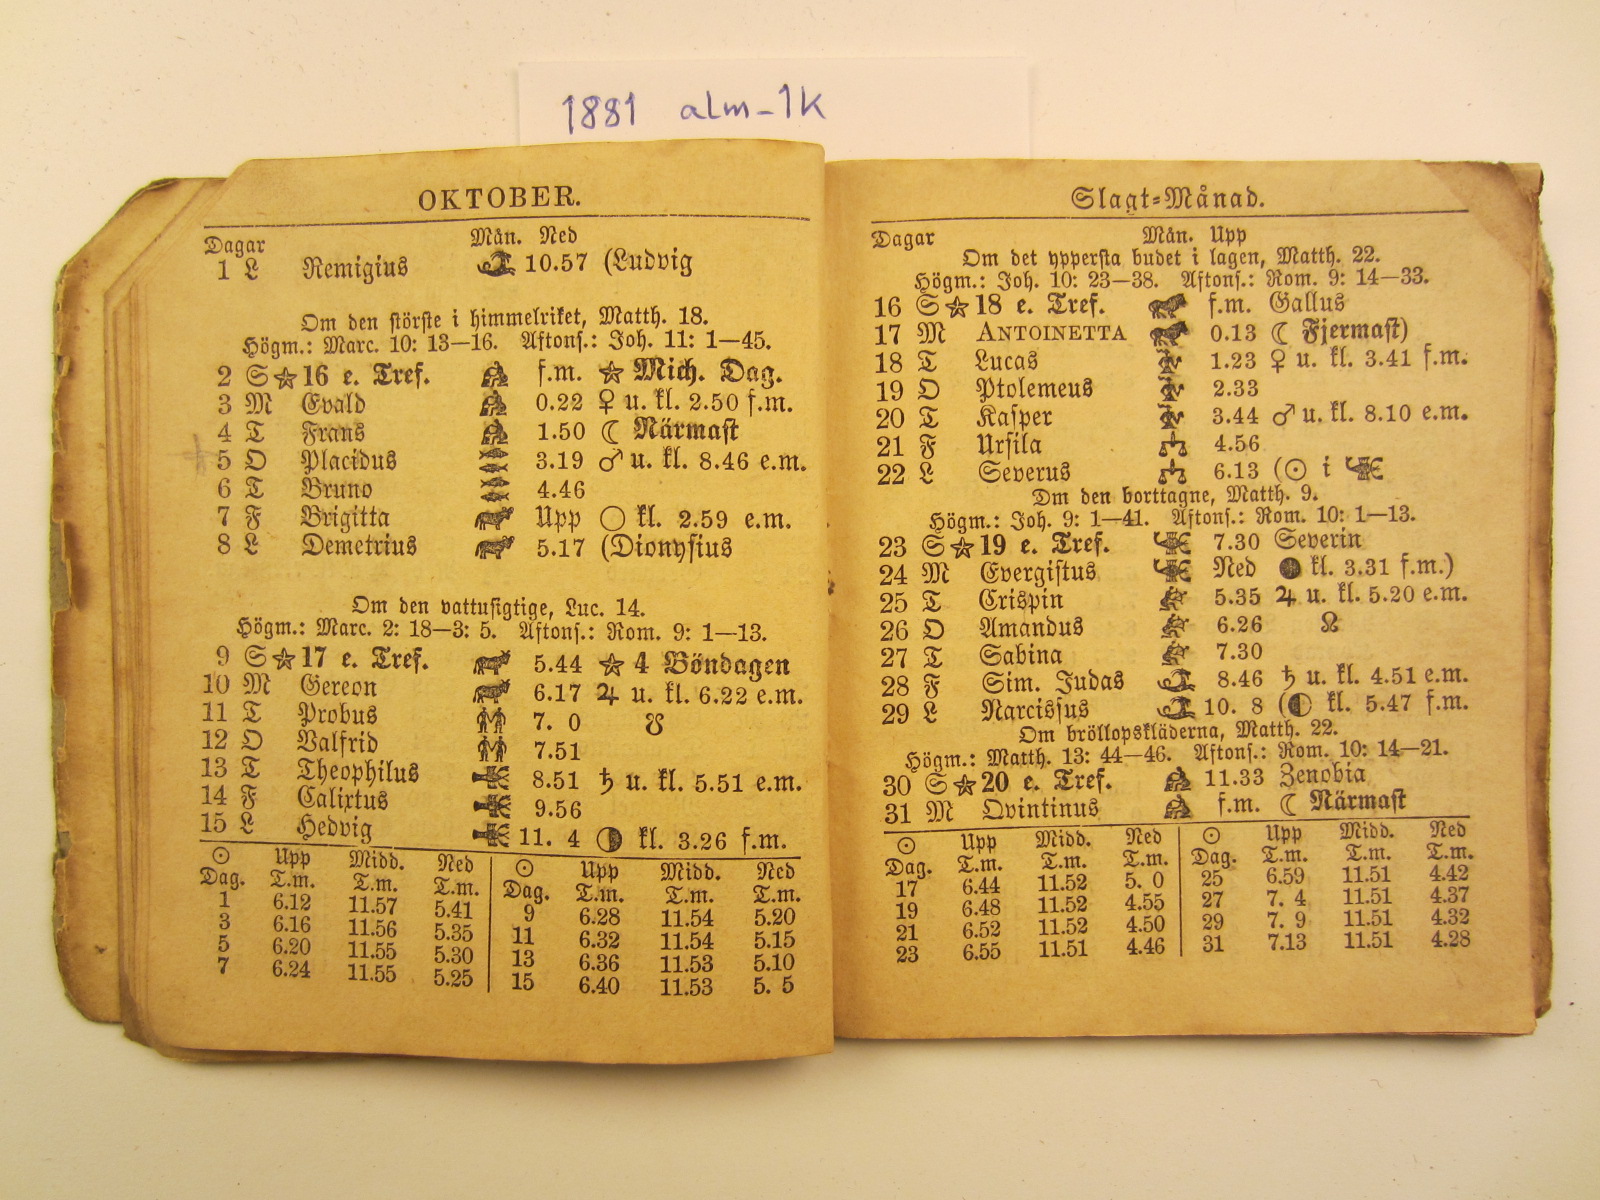 1881 alm-1k
OKTOBER.
Dagar Mån. Ned
1 L Remigius 10.57 (Ludvig
Om den störste i himmelriket, Matth. 18.
Högm.: Marc. 10: 13—16. Aftons.: Joh. 11: 1—45.
2 S ☆ 16 e. Tref. f.m. ☆ Mich. Dag.
3 M Evald 0.22 ♀ u. kl. 2.50 f.m.
4 T Frans 1.50 ☾ Närmast
5 O Placidus 3.19 ♂ u. kl. 8.46 e.m.
6 T Bruno 4.46
7 F Brigitta Upp ○ kl. 2.59 e.m.
8 L Demetrius 5.17 (Dionysius
Om den vattusigtige, Luc. 14.
Högm.: Marc. 2: 18—3: 5. Aftons.: Rom. 9: 1—13.
9 S ☆ 17 e. Tref. 5.44 ☆ 4 Böndagen
10 M Gereon 6.17 ♃ u. kl. 6.22 e.m.
11 T Probus 7. 0 ☋
12 O Valfrid 7.51
13 T Theophilus 8.51 ♄ u. kl. 5.51 e.m.
14 F Calixtus 9.56
15 L Hedvig 11. 4 ◑ kl. 3.26 f.m.
☉ Upp Midd. Ned ☉ Upp Midd. Ned
Dag. T.m. T.m. T.m. Dag. T.m. T.m. T.m.
1 6.12 11.57 5.41 9 6.28 11.54 5.20
3 6.16 11.56 5.35 11 6.32 11.54 5.15
5 6.20 11.55 5.30 13 6.36 11.53 5.10
7 6.24 11.55 5.25 15 6.40 11.53 5. 5
Slagt-Månad.
Dagar Mån. Upp
Om det yppersta budet i lagen, Matth. 22.
Högm.: Joh. 10: 23—38. Aftons.: Rom. 9: 14—33.
16 S ☆ 18 e. Tref. f.m. Gallus
17 M ANTOINETTA 0.13 ☾ Fjermast)
18 T Lucas 1.23 ♀ u. kl. 3.41 f.m.
19 O Ptolemeus 2.33
20 T Kasper 3.44 ♂ u. kl. 8.10 e.m.
21 F Ursila 4.56
22 L Severus 6.13 (☉ i
Om den borttagne, Matth. 9.
Högm.: Joh. 9: 1—41. Aftons.: Rom. 10: 1—13.
23 S ☆ 19 e. Tref. 7.30 Severin
24 M Evergistus Ned ● kl. 3.31 f.m.)
25 T Crispin 5.35 ♃ u. kl. 5.20 e.m.
26 O Amandus 6.26 ☊
27 T Sabina 7.30
28 F Sim. Judas 8.46 ♄ u. kl. 4.51 e.m.
29 L Narcissus 10. 8 (◐ kl. 5.47 f.m.
Om bröllopskläderna, Matth. 22.
Högm.: Matth. 13: 44—46. Aftons.: Rom. 10: 14—21.
30 S ☆ 20 e. Tref. 11.33 Zenobia
31 M Qvintinus f.m. ☾ Närmast
☉ Upp Midd. Ned ☉ Upp Midd. Ned
Dag. T.m. T.m. T.m. Dag. T.m. T.m. T.m.
17 6.44 11.52 5. 0 25 6.59 11.51 4.42
19 6.48 11.52 4.55 27 7. 4 11.51 4.37
21 6.52 11.52 4.50 29 7. 9 11.51 4.32
23 6.55 11.51 4.46 31 7.13 11.51 4.28